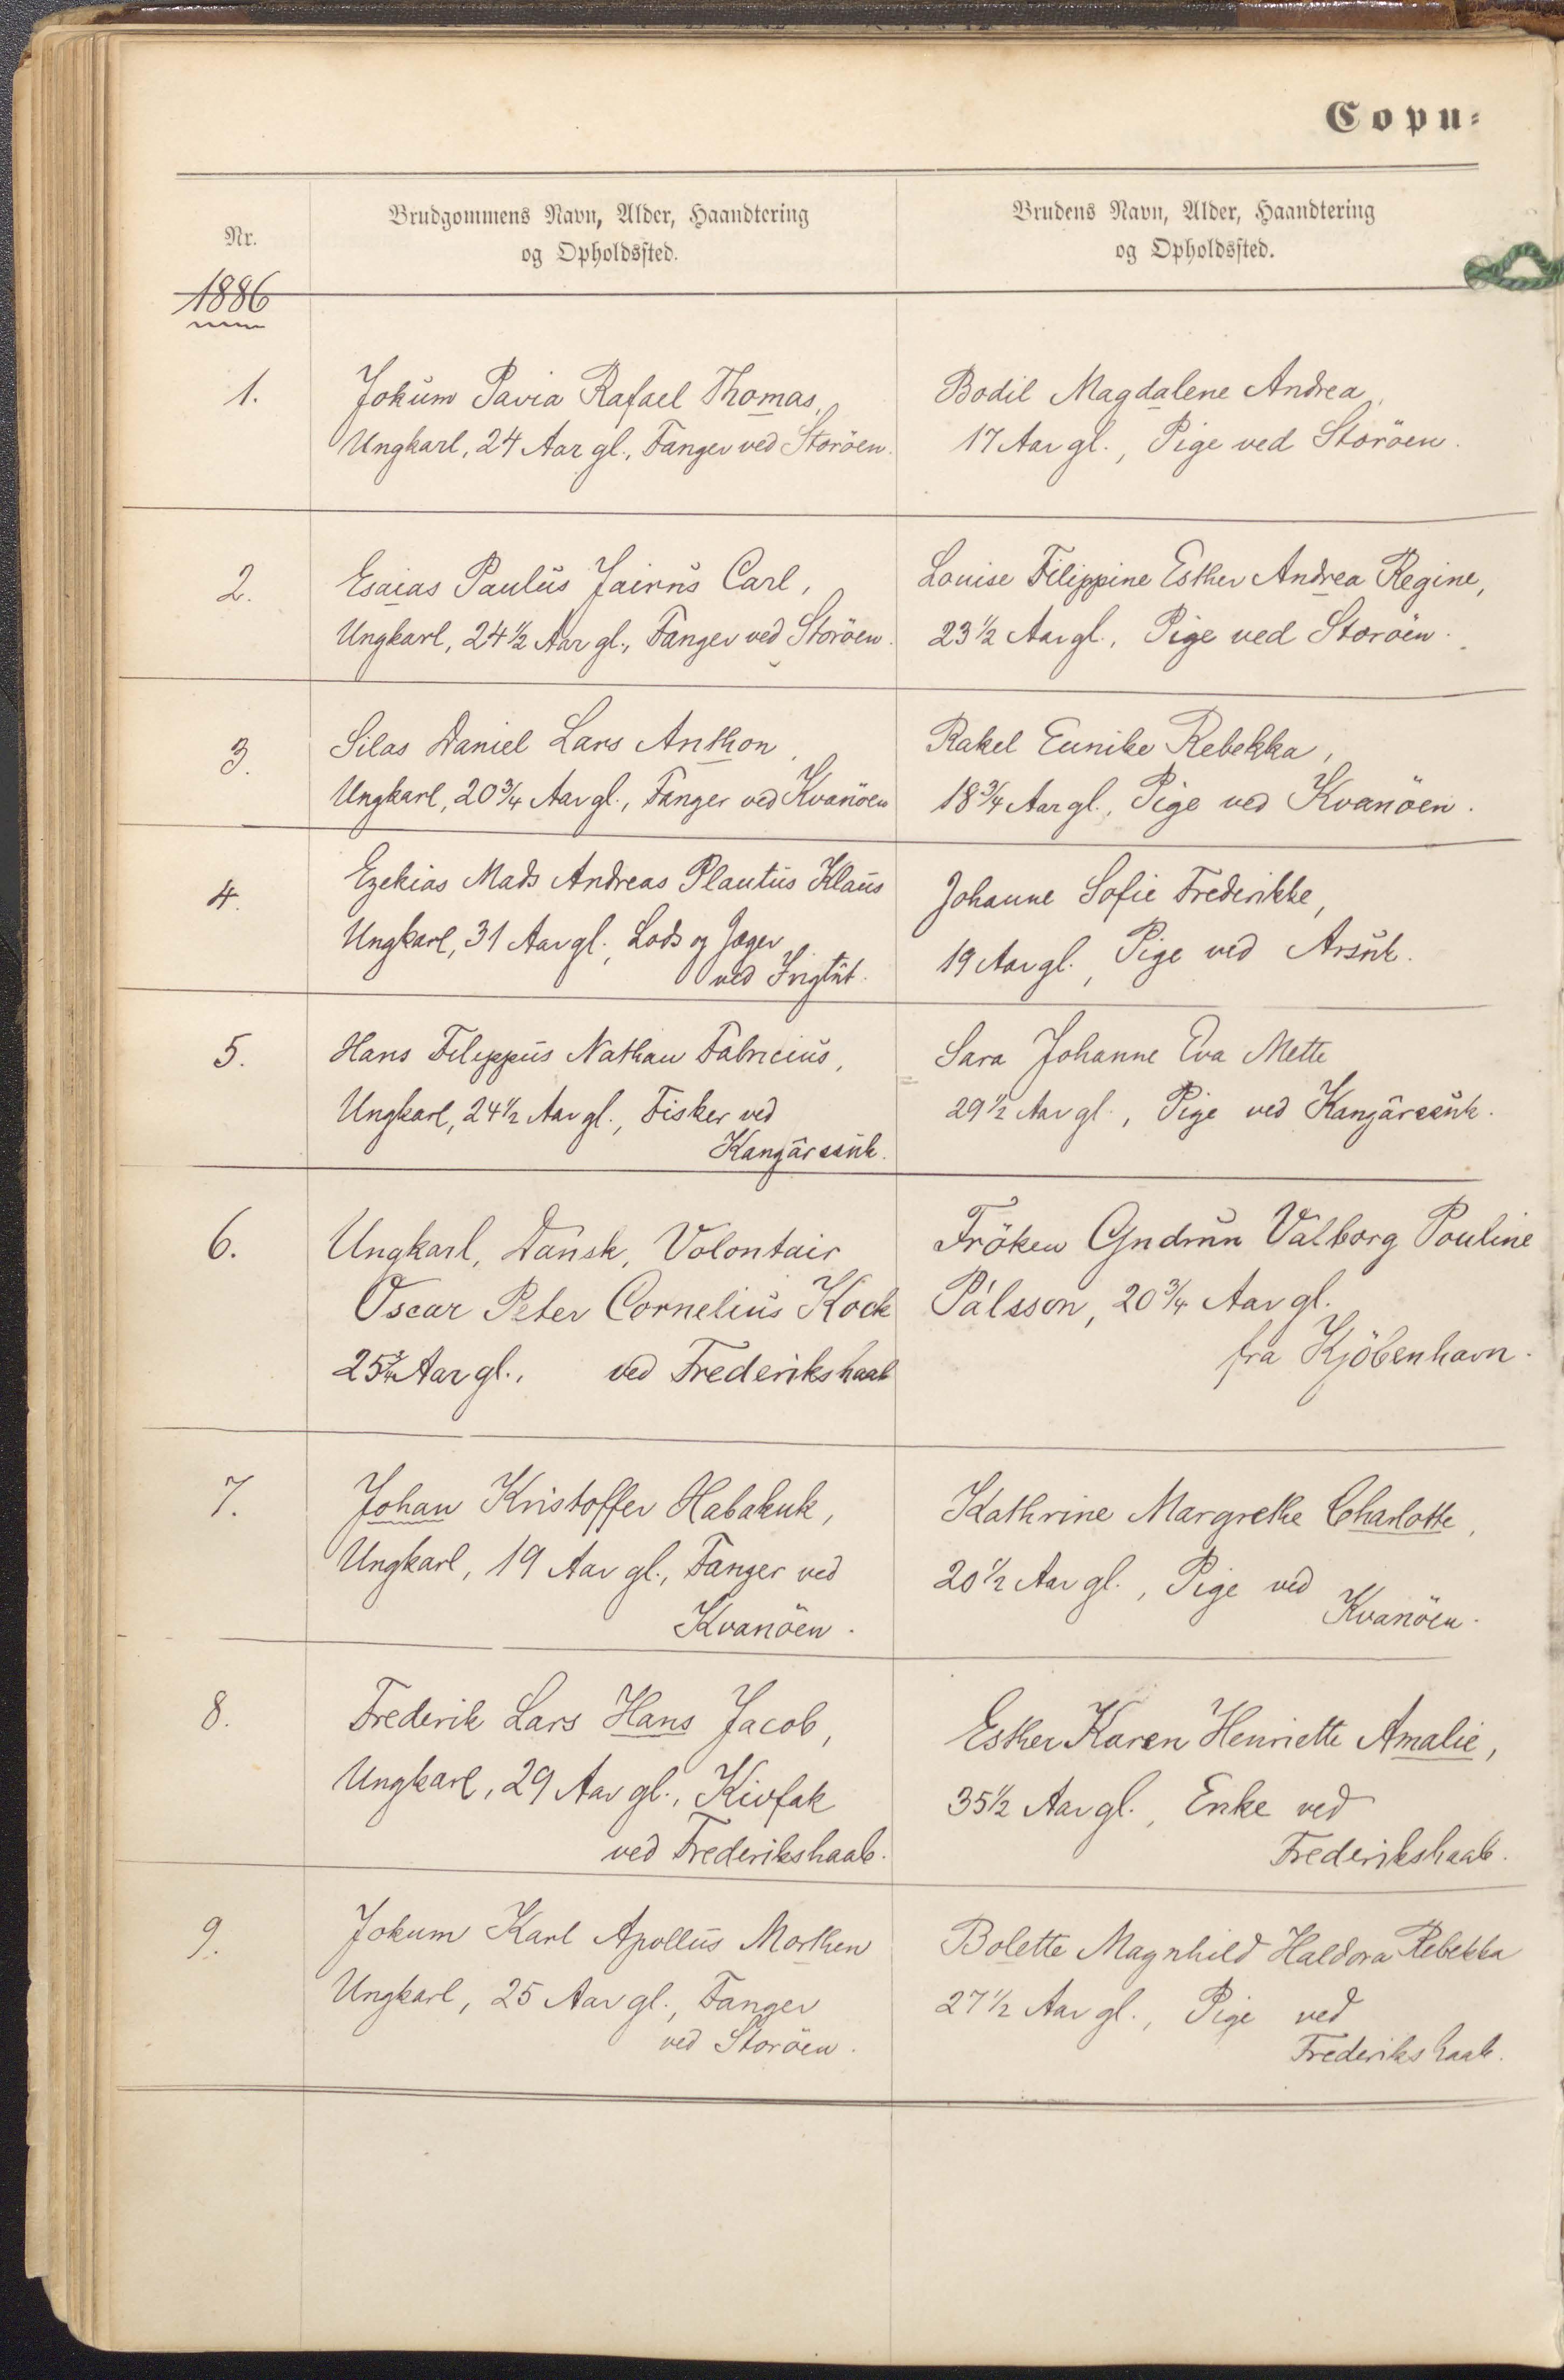 Copu-
Nr.
Brudgommens Navn, Alder, Haandtering
og Opholdssted.
Brudens Navn, Alder, Haandtering
og Opholdssted.
1886
1.
Jokum Pavia Rafael Thomas,
Ungkarl, 24 Aar gl., Fanger ved Storöen.
Bodil Magdalene Andrea,
17 Aar gl., Pige ved Storöen.
2.
Esaias Paulus Jairus Carl,
Ungkarl, 24 1/2 Aar gl., Fanger ved Storöen.
Louise Filippine Esther Andrea Regine,
23 1/2 Aar gl., Pige ved Storöen.
3.
Silas Daniel Lars Anthon,
Ungkarl, 20 3/4 Aar gl., Fanger ved Kvanöen
Rakel Eunike Rebekka,
18 3/4 Aar gl., Pige ved Kvanöen.
4.
Ezekias Mads Andreas Plautus Klaus
Ungkarl, 31 Aar gl., Lods og Jæger
ved Ivigtut.
Johanne Sofie Frederikke,
19 Aar gl., Pige ved Arsuk.
5.
Hans Filippus Nathan Fabricius,
Ungkarl, 24 1/2 Aar gl., Fisker ved
Kangârssuk.
Sara Johanne Eva Mette
29 1/2 Aar gl., Pige ved Kangârssuk.
6.
Ungkarl, Dansk, Volontair
Oscar Peter Cornelius Kock
25 3/4 Aar gl., ved Frederikshaab
Fröken Gudrun Valborg Pouline
Pálsson, 20 3/4 Aar gl.
fra Kjöbenhavn.
7.
Johan Kristoffer Habakuk,
Ungkarl, 19 Aar gl., Fanger ved
Kvanöen.
Kathrine Margrethe Charlotte,
20 1/2 Aar gl., Pige ved
Kvanöen.
8.
Frederik Lars Hans Jacob,
Ungkarl, 29 Aar gl., Kivfak
ved Frederikshaab.
Esther Karen Henriette Amalie,
35 1/2 Aar gl., Enke ved
Frederikshaab.
9.
Jokum Karl Apollus Morten
Ungkarl, 25 Aar gl., Fanger
ved Storöen.
Bolette Magnhild Haldora Rebekka
27 1/2 Aar gl., Pige ved
Frederikshaab.